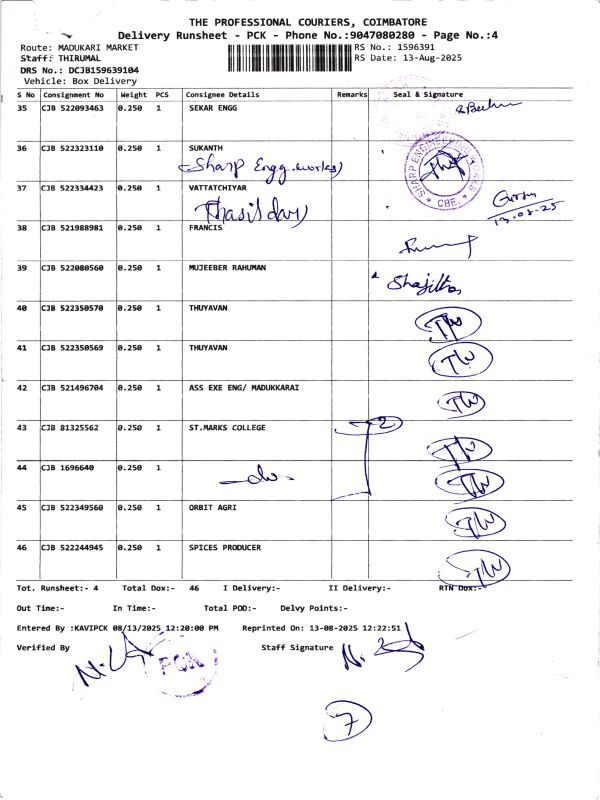 THE PROFESSIONAL COURIERS, COIMBATORE
Delivery Runsheet - PCK - Phone No.:9047080280 - Page No.:4
Route: MADUKARI MARKET RS No.: 1596391
Staff: THIRUMAL RS Date: 13-Aug-2025
DRS No.: DCJB159639104
Vehicle: Box Delivery
S No Consignment No Weight PCS Consignee Details Remarks Seal & Signature
35 CJB 522093463 0.250 1 SEKAR ENGG
36 CJB 522323110 0.250 1 SUKANTH
Sharp Engg. works)
SHARP ENGINEERING WORKS
* CBE. *
37 CJB 522334423 0.250 1 VATTATCHIYAR
Thasildar)
13.08.25
38 CJB 521988981 0.250 1 FRANCIS
39 CJB 522080560 0.250 1 MUJEEBER RAHUMAN
Shajitha
40 CJB 522350570 0.250 1 THUYAVAN
41 CJB 522350569 0.250 1 THUYAVAN
42 CJB 521496704 0.250 1 ASS EXE ENG/ MADUKKARAI
43 CJB 81325562 0.250 1 ST.MARKS COLLEGE 2
44 CJB 1696640 0.250 1 -do-
45 CJB 522349560 0.250 1 ORBIT AGRI
46 CJB 522244945 0.250 1 SPICES PRODUCER
Tot. Runsheet:- 4 Total Dox:- 46 I Delivery:- II Delivery:- RTN Dox:-
Out Time:- In Time:- Total POD:- Delvy Points:-
Entered By :KAVIPCK 08/13/2025 12:20:00 PM Reprinted On: 13-08-2025 12:22:51
Verified By Staff Signature
PCK
7